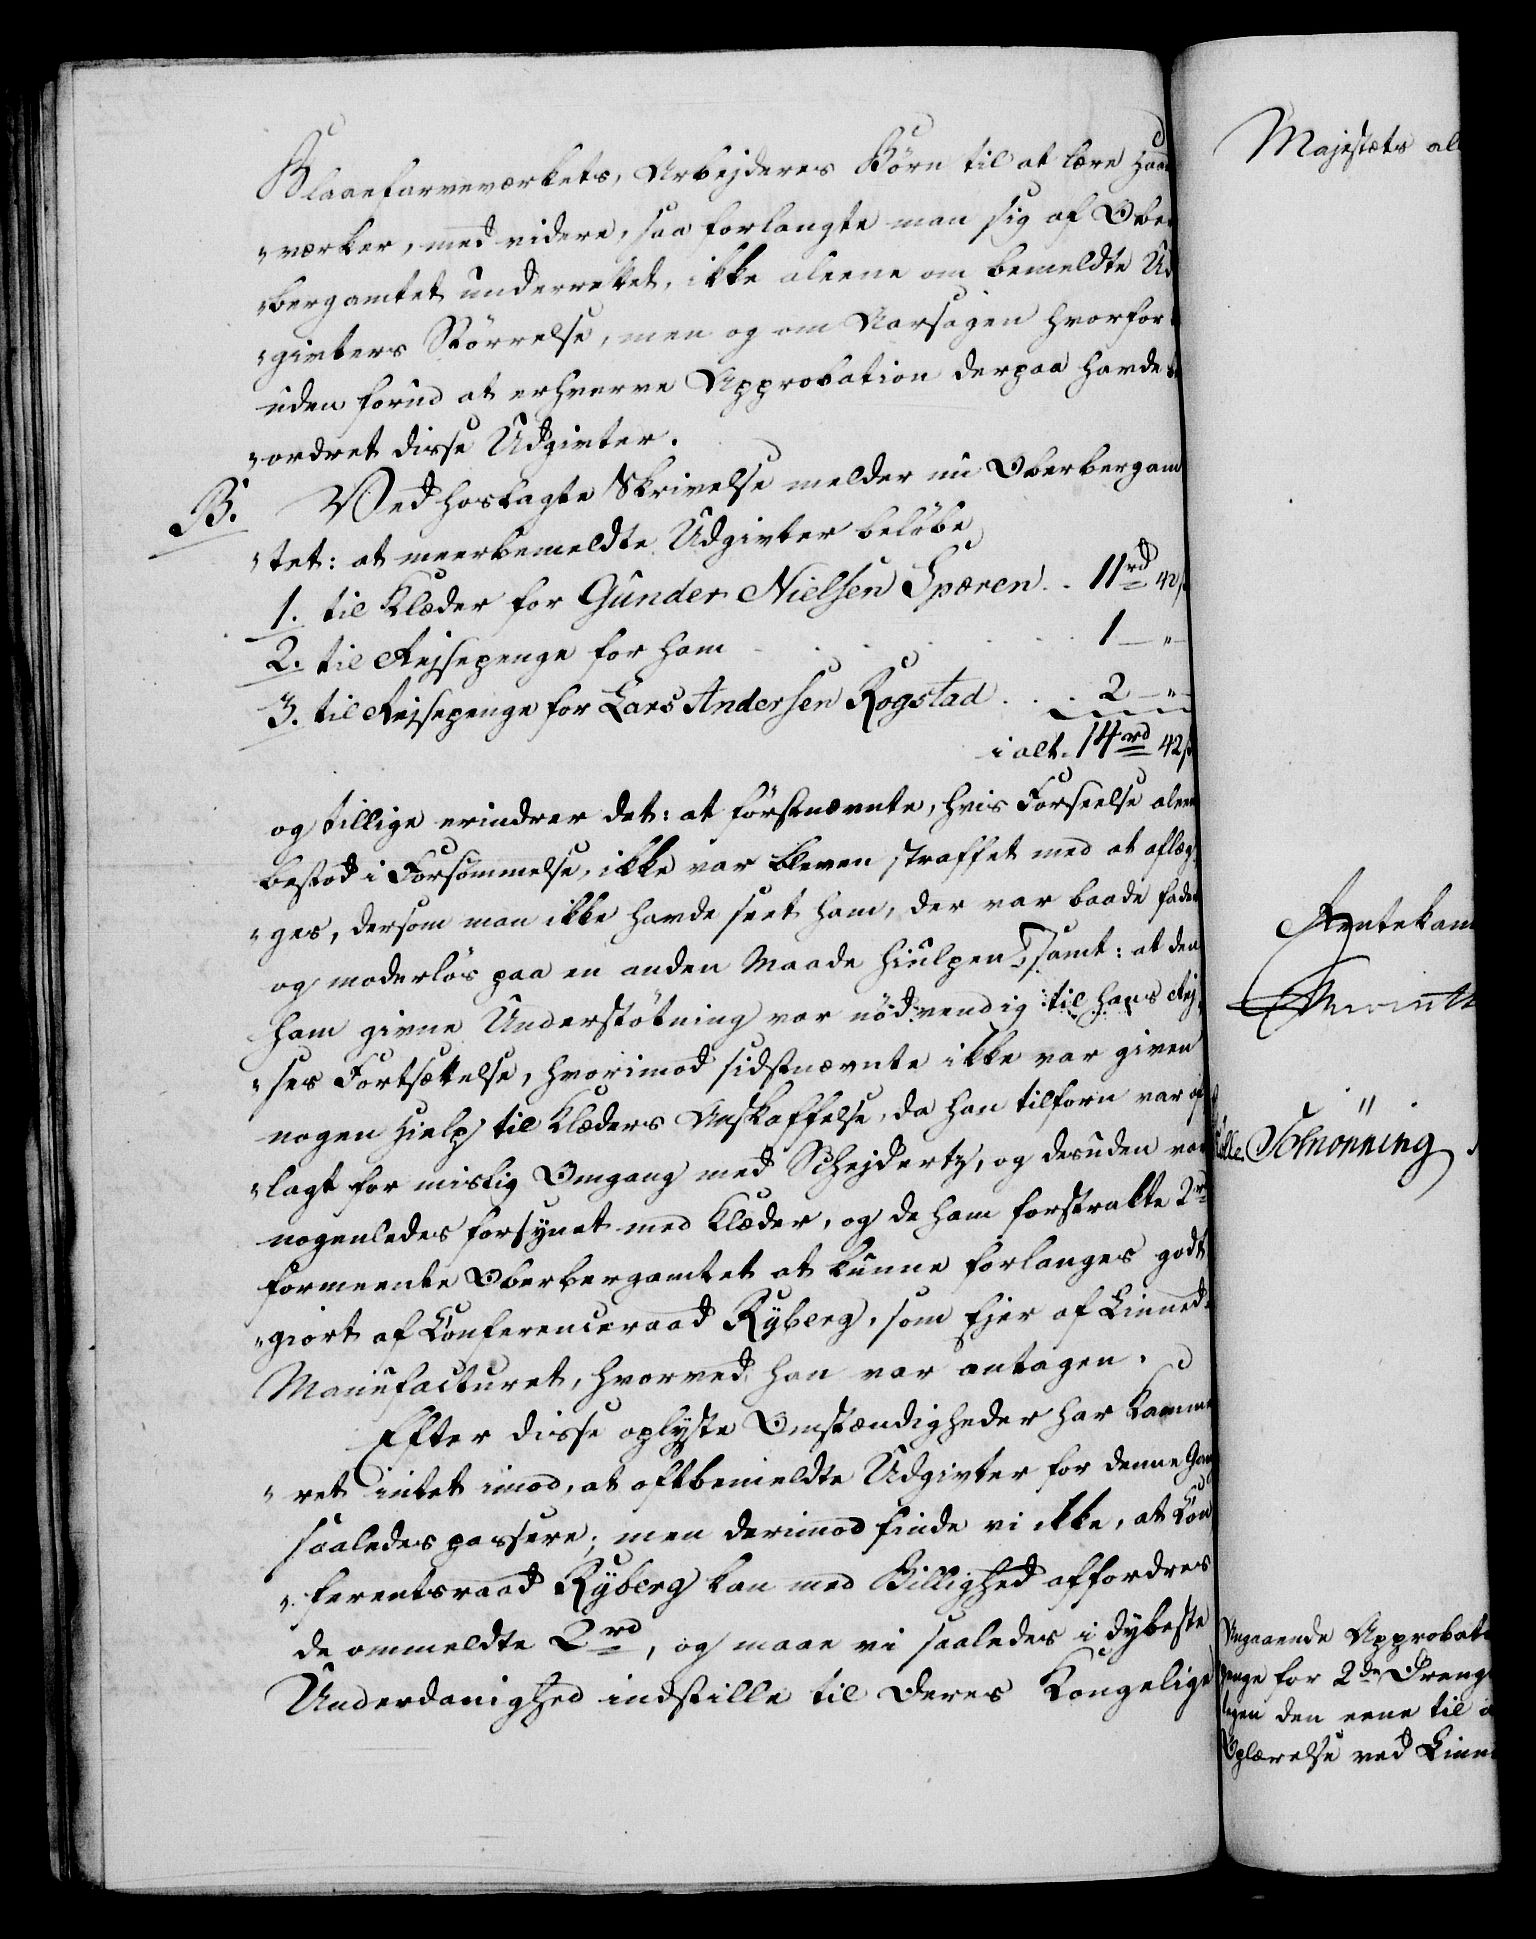 Blaaefarveværkets, Arbejderes Börn til at lære Haand
„værker, med videre, saa forlangte man sig af Ober
„bergamtet underrettet, ikke aleene om bemeldte Ud
„givters Störrelse, men og om Aarsagen hvorfor
uden forud at erhverve Approbation derpaa havde be
„ordret disse Udgivter.
B. Ved hoslagte Skrivelse melder nu Oberbergam
„tet: at meerbemeldte Udgivter beløbe
1. til Klæder for Gunder Nielsen Sparen . . 11rd 42s
2. til Rejsepenge for ham . . . . 1 — „ —
3. til Rejsepenge for Lars Andersen Rogstad . . . 2 — „ —
i alt. 14rd 42s
og tillige erindrer det: at förstnævnte, hvis Forseelse aleene
bestod i Forsömmelse, ikke var bleven straffet med at aflæg
„ges, dersom man ikke havde seet ham, der var baade fader
og moderlös paa en anden Maade hiulpen, samt: at den
ham givne Understötning var nödvendig til hans Rej
„ses Fortsættelse, hvorimod sidstnævnte ikke var given
nogen Hielp til Klæders Anskaffelse, da han tilforn var af
„lagt for mislig Omgang med Schejdertz, og desuden var
nogenledes forsynet med Klæder, og de ham forstrakte 2rd
formeente Oberbergamtet at kunne forlanges godt
„giort af Conferenceraad Ryberg, som Ejer af Linned
Manufacturet, hvorved han var antagen.
Efter disse oplyste Omstændigheder har Kamme
„ret intet imod, at oftbemeldte Udgivter for denne Gang
saaledes passere; men derimod finde vi ikke, at Con
„ferentsraad Ryberg kan med Billighed affordres
de ommeldte 2rd, og maae vi saaledes i dybeste
Underdanighed indstille til Deres Kongelige
Majestæts al
Rentekam
Schönning
Angaaende Approbati
penge for 2de Drenge
den eene til
Oplærelse ved Linne